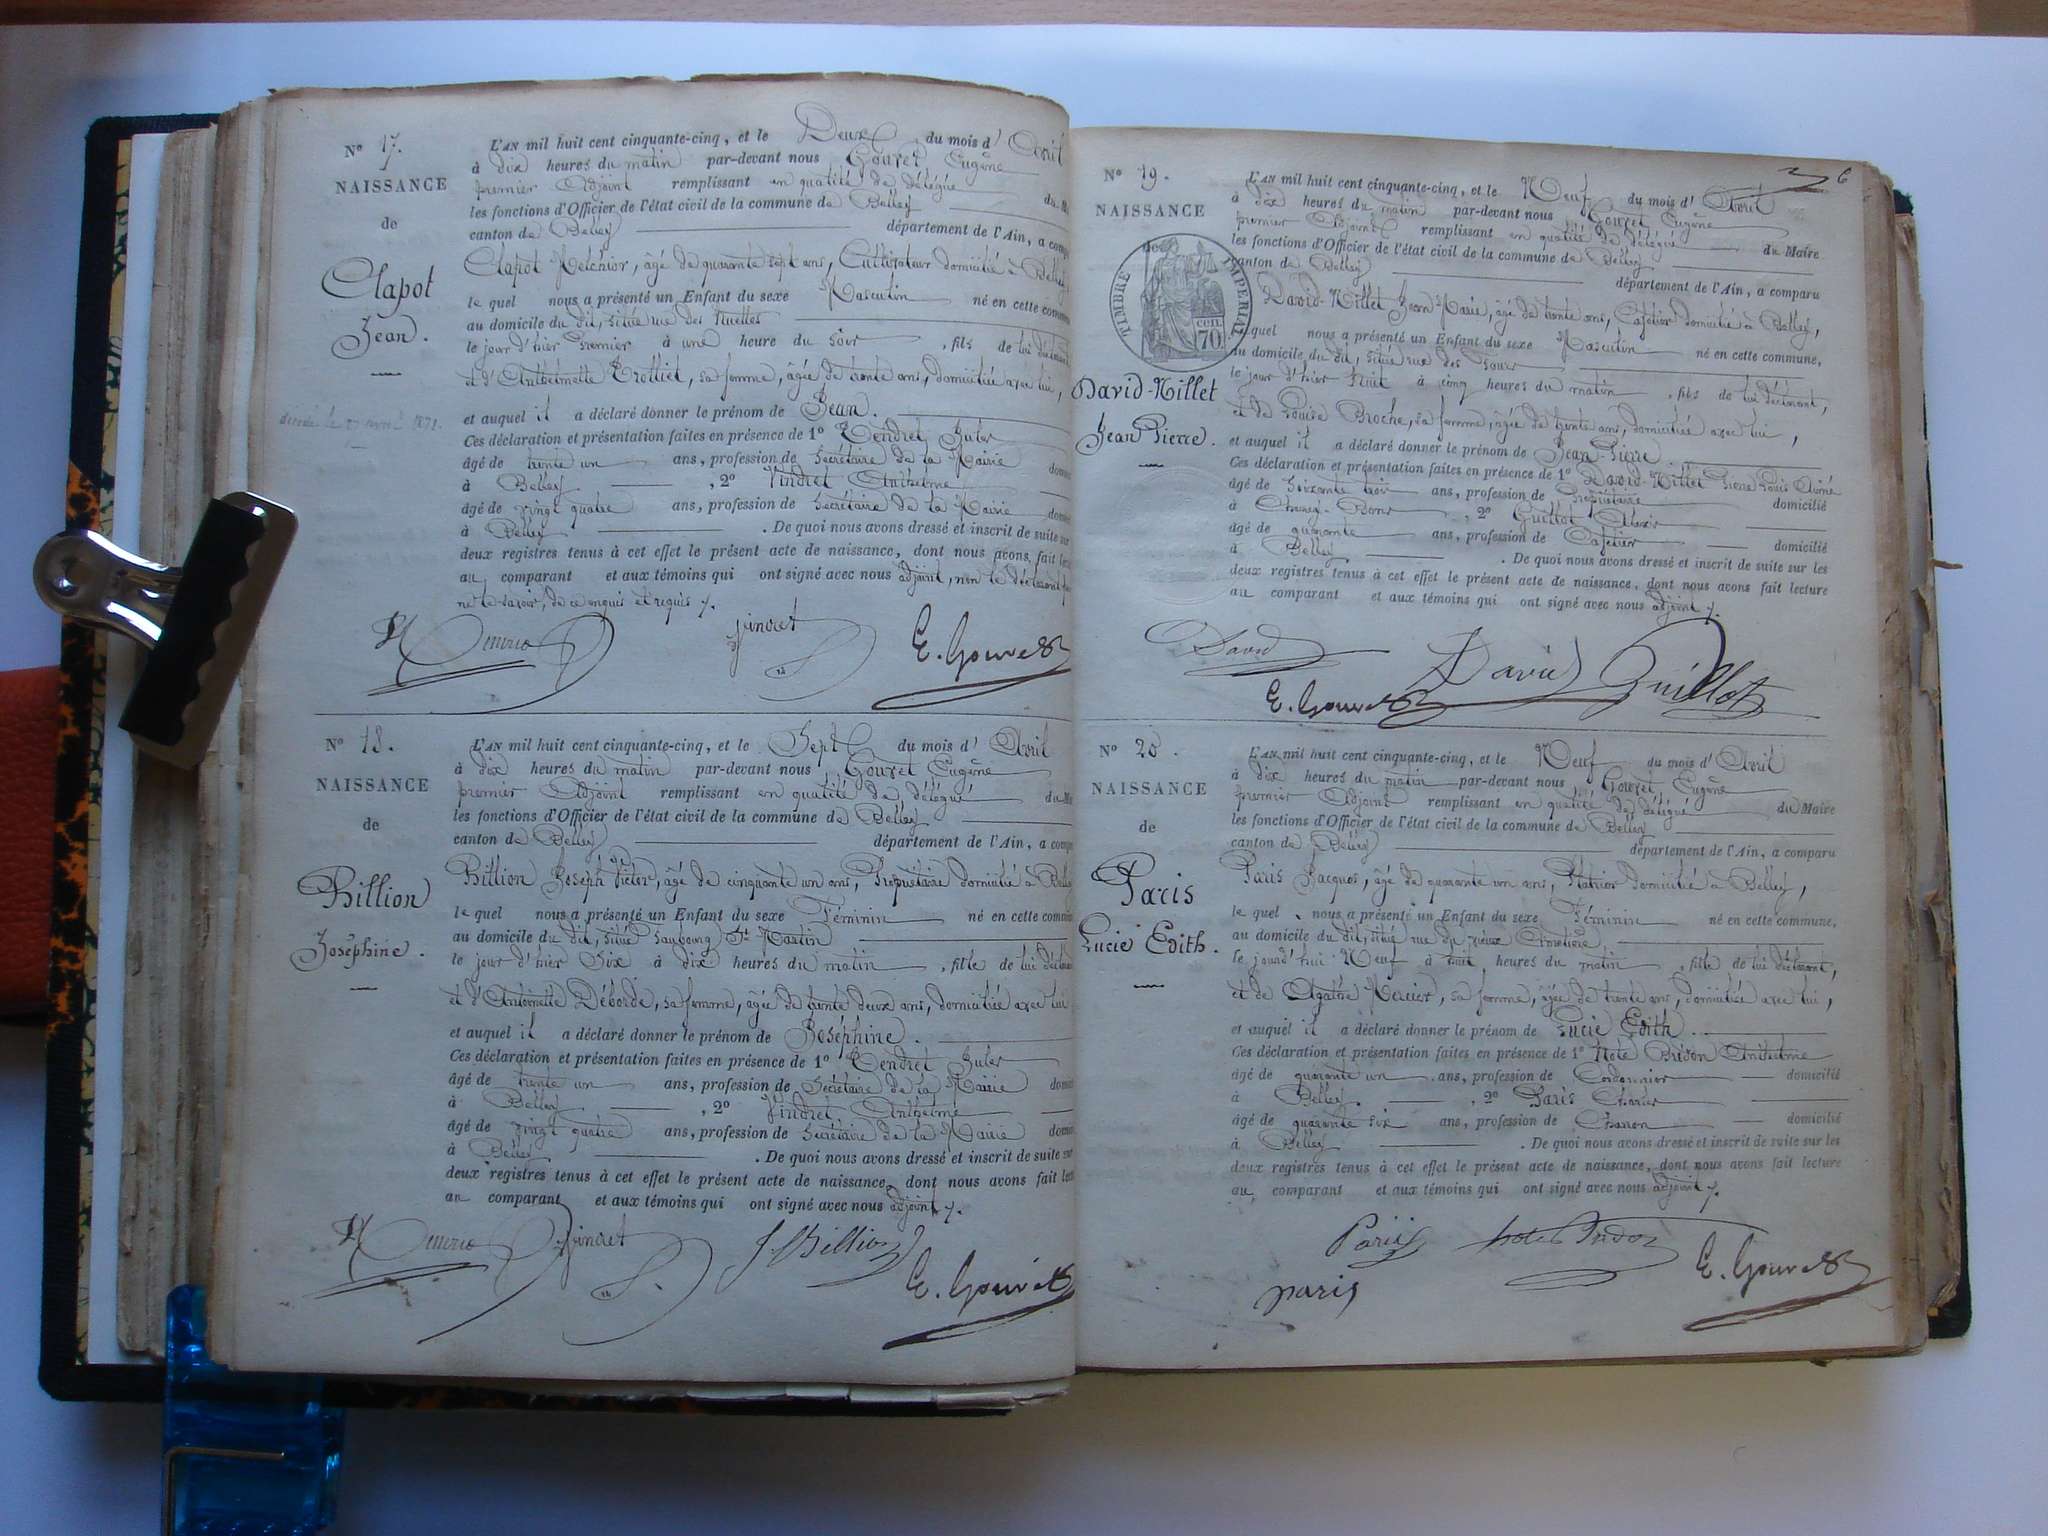 N° 17.
NAISSANCE
de
Clapot
Jean.
décédé le 27 avril 1871.
L'AN mil huit cent cinquante-cinq, et le Deux du mois d' Avril
à dix heures du matin par-devant nous Gouvet Eugêne
premier Adjoint remplissant en qualité de délégué du
les fonctions d'Officier de l'état civil de la commune de Belley
canton de Belley département de l'Ain, a
Clapot Melchior, âgé de quarante sept ans, Cultivateur domicilié à Belley,
le quel nous a présenté un Enfant du sexe Masculin né en cette
au domicile du dit, situé rue des
le jour d'hier premier à une heure du soir, fils de lui déclarant
et d'Anthelmette Trolliet, sa femme, âgée de trente ans, domiciliée avec lui,
et auquel il a déclaré donner le prénom de Jean.
Ces déclaration et présentation faites en présence de 1° Tendret Jules
âgé de trente un ans, profession de Secrétaire de la Mairie
à Belley, 2° Vindret Anthelme
âgé de vingt quatre ans, profession de Secrétaire de la Mairie
à Belley. De quoi nous avons dressé et inscrit de suite sur
deux registres tenus à cet effet le présent acte de naissance, dont nous avons fait
au comparant et aux témoins qui ont signé avec nous adjoint, non le déclarant pour
ne le savoir, de ce enquis et requis
Vindret E. Gouvet
N° 18.
NAISSANCE
de
Billion
Joséphine.
L'AN mil huit cent cinquante-cinq, et le Sept du mois d' Avril
à dix heures du matin par-devant nous Gouvet Eugêne
premier Adjoint remplissant en qualité de délégué du
les fonctions d'Officier de l'état civil de la commune de Belley
canton de Belley département de l'Ain, a
Billion Joseph Victor, âgé de cinquante un ans, Propriétaire domicilié à Belley
le quel nous a présenté un Enfant du sexe Féminin né en cette
au domicile du dit, situé faubourg St Martin
le jour d'hier Six à dix heures du matin, fille de lui déclarant
et d'Antoinette Déborde, sa femme, âgée de trente deux ans, domiciliée avec lui
et auquel il a déclaré donner le prénom de Joséphine.
Ces déclaration et présentation faites en présence de 1° Tendret Jules
âgé de trente un ans, profession de Secrétaire de la Mairie
à Belley, 2° Vindret Anthelme
âgé de vingt quatre ans, profession de Secrétaire de la Mairie
à Belley. De quoi nous avons dressé et inscrit de suite sur
deux registres tenus à cet effet le présent acte de naissance, dont nous avons fait
au comparant et aux témoins qui ont signé avec nous adjoint
Vindret Billion E. Gouvet
6
N° 19.
NAISSANCE
de
TIMBRE IMPERIAL
70 cen.
David-Millet
Jean Pierre.
L'AN mil huit cent cinquante-cinq, et le Neuf du mois d' Avril
à dix heures du matin par-devant nous Gouvet Eugêne
premier Adjoint remplissant en qualité de délégué du Maire
les fonctions d'Officier de l'état civil de la commune de Belley
canton de Belley département de l'Ain, a comparu
David-Millet Jean Marie, âgé de trente ans, Cafetier domicilié à Belley,
le quel nous a présenté un Enfant du sexe Masculin né en cette commune,
au domicile du dit, situé rue des
le jour d'hier huit à cinq heures du matin, fils de lui déclarant,
et de Louise Broche, sa femme, âgée de trente ans, domiciliée avec lui,
et auquel il a déclaré donner le prénom de Jean-Pierre
Ces déclaration et présentation faites en présence de 1° David-Millet Pierre Louis Aimé
âgé de soixante trois ans, profession de Propriétaire domicilié
à, 2° Guillot Alexis
âgé de quarante ans, profession de Cafetier domicilié
à Belley. De quoi nous avons dressé et inscrit de suite sur les
deux registres tenus à cet effet le présent acte de naissance, dont nous avons fait lecture
au comparant et aux témoins qui ont signé avec nous adjoint
David David Guillot
E. Gouvet
N° 20.
NAISSANCE
de
Paris
Lucie Edith.
L'AN mil huit cent cinquante-cinq, et le Neuf du mois d' Avril
à dix heures du matin par-devant nous Gouvet Eugêne
premier Adjoint remplissant en qualité de délégué du Maire
les fonctions d'Officier de l'état civil de la commune de Belley
canton de Belley département de l'Ain, a comparu
Paris Jacques, âgé de quarante un ans, Platrier domicilié à Belley,
le quel nous a présenté un Enfant du sexe Féminin né en cette commune,
au domicile du dit, situé rue du vieux Cimetière
le jourd'hui Neuf à huit heures du matin, fille de lui déclarant,
et de Agathe Mercier, sa femme, âgée de trente ans, domiciliée avec lui,
et auquel il a déclaré donner le prénom de Lucie Edith.
Ces déclaration et présentation faites en présence de 1° Anthelme
âgé de quarante un ans, profession de Cordonnier domicilié
à Belley, 2° Paris Charles
âgé de quarante six ans, profession de Charron domicilié
à Belley. De quoi nous avons dressé et inscrit de suite sur les
deux registres tenus à cet effet le présent acte de naissance, dont nous avons fait lecture
au comparant et aux témoins qui ont signé avec nous adjoint
Paris E. Gouvet
paris